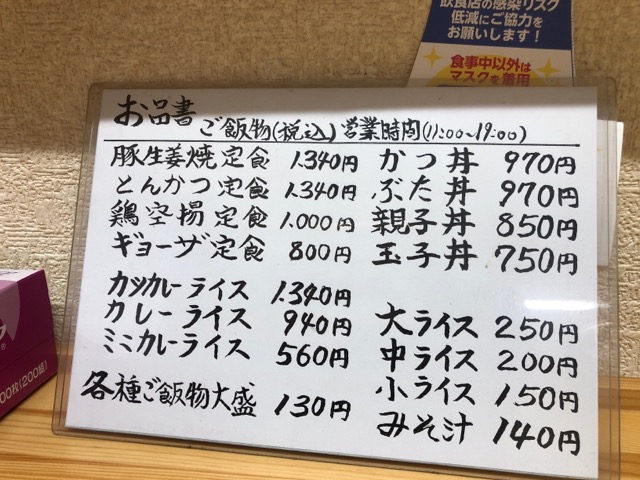 飲食店の感染リスク
低減にご協力を
お願いします!
食事中以外は
マスクを着用
お品書 ご飯物(税込) 営業時間(11:00~19:00)
豚生姜焼定食 1.340円
とんかつ定食 1.340円
鶏空揚定食 1.000円
ギョーザ定食 800円
カツカレーライス 1.340円
カレーライス 940円
ミニカレーライス 560円
各種ご飯物大盛 130円
かつ丼 970円
ぶた丼 970円
親子丼 850円
玉子丼 750円
大ライス 250円
中ライス 200円
小ライス 150円
みそ汁 140円
00枚(200組)